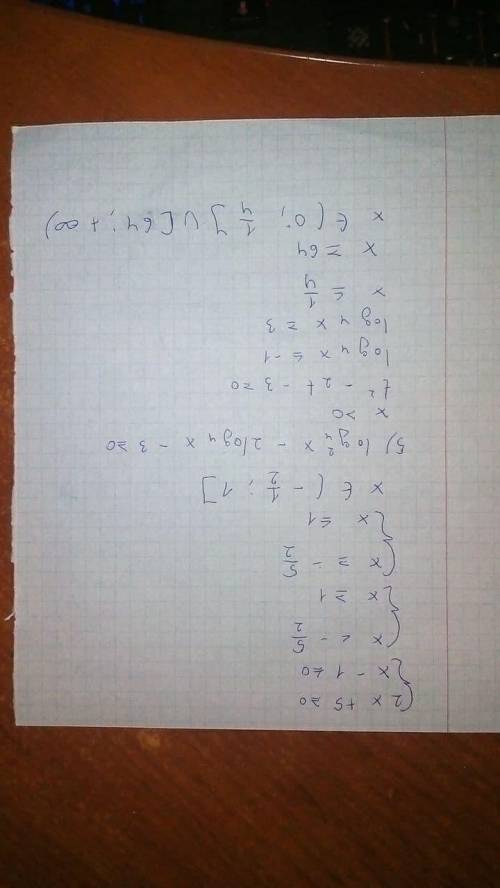 2x + 5 ≥ 0
x - 1 < 0
x < - 5/2
x ≥ 1
x ≥ - 5/2
x ≤ 1
x ∈ (- 1/2 ; 1]
5) log²₄ x - 2log₄ x - 3 ≥ 0
x > 0
t² - 2t - 3 ≥ 0
log₄ x ≤ -1
log₄ x ≥ 3
x ≤ 1/4
x ≥ 64
x ∈ (0; 1/4] ∪ [64; +∞)